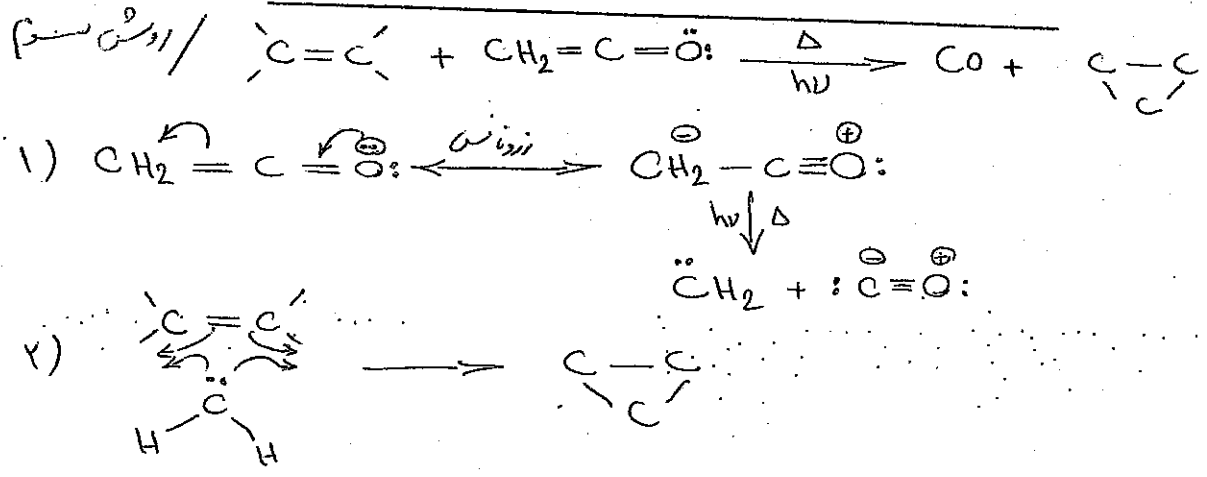 روش سوم / C=C + CH₂=C=Ö: →(Δ / hν) CO + C–C \ C /
۱) CH₂=C=Ö: ↔ رزونانس ⊖CH₂–C≡O⊕:
hν ↓ Δ
C̈H₂ + :C⊖≡O⊕:
۲) C=C → C–C
C̈ \ C /
H H